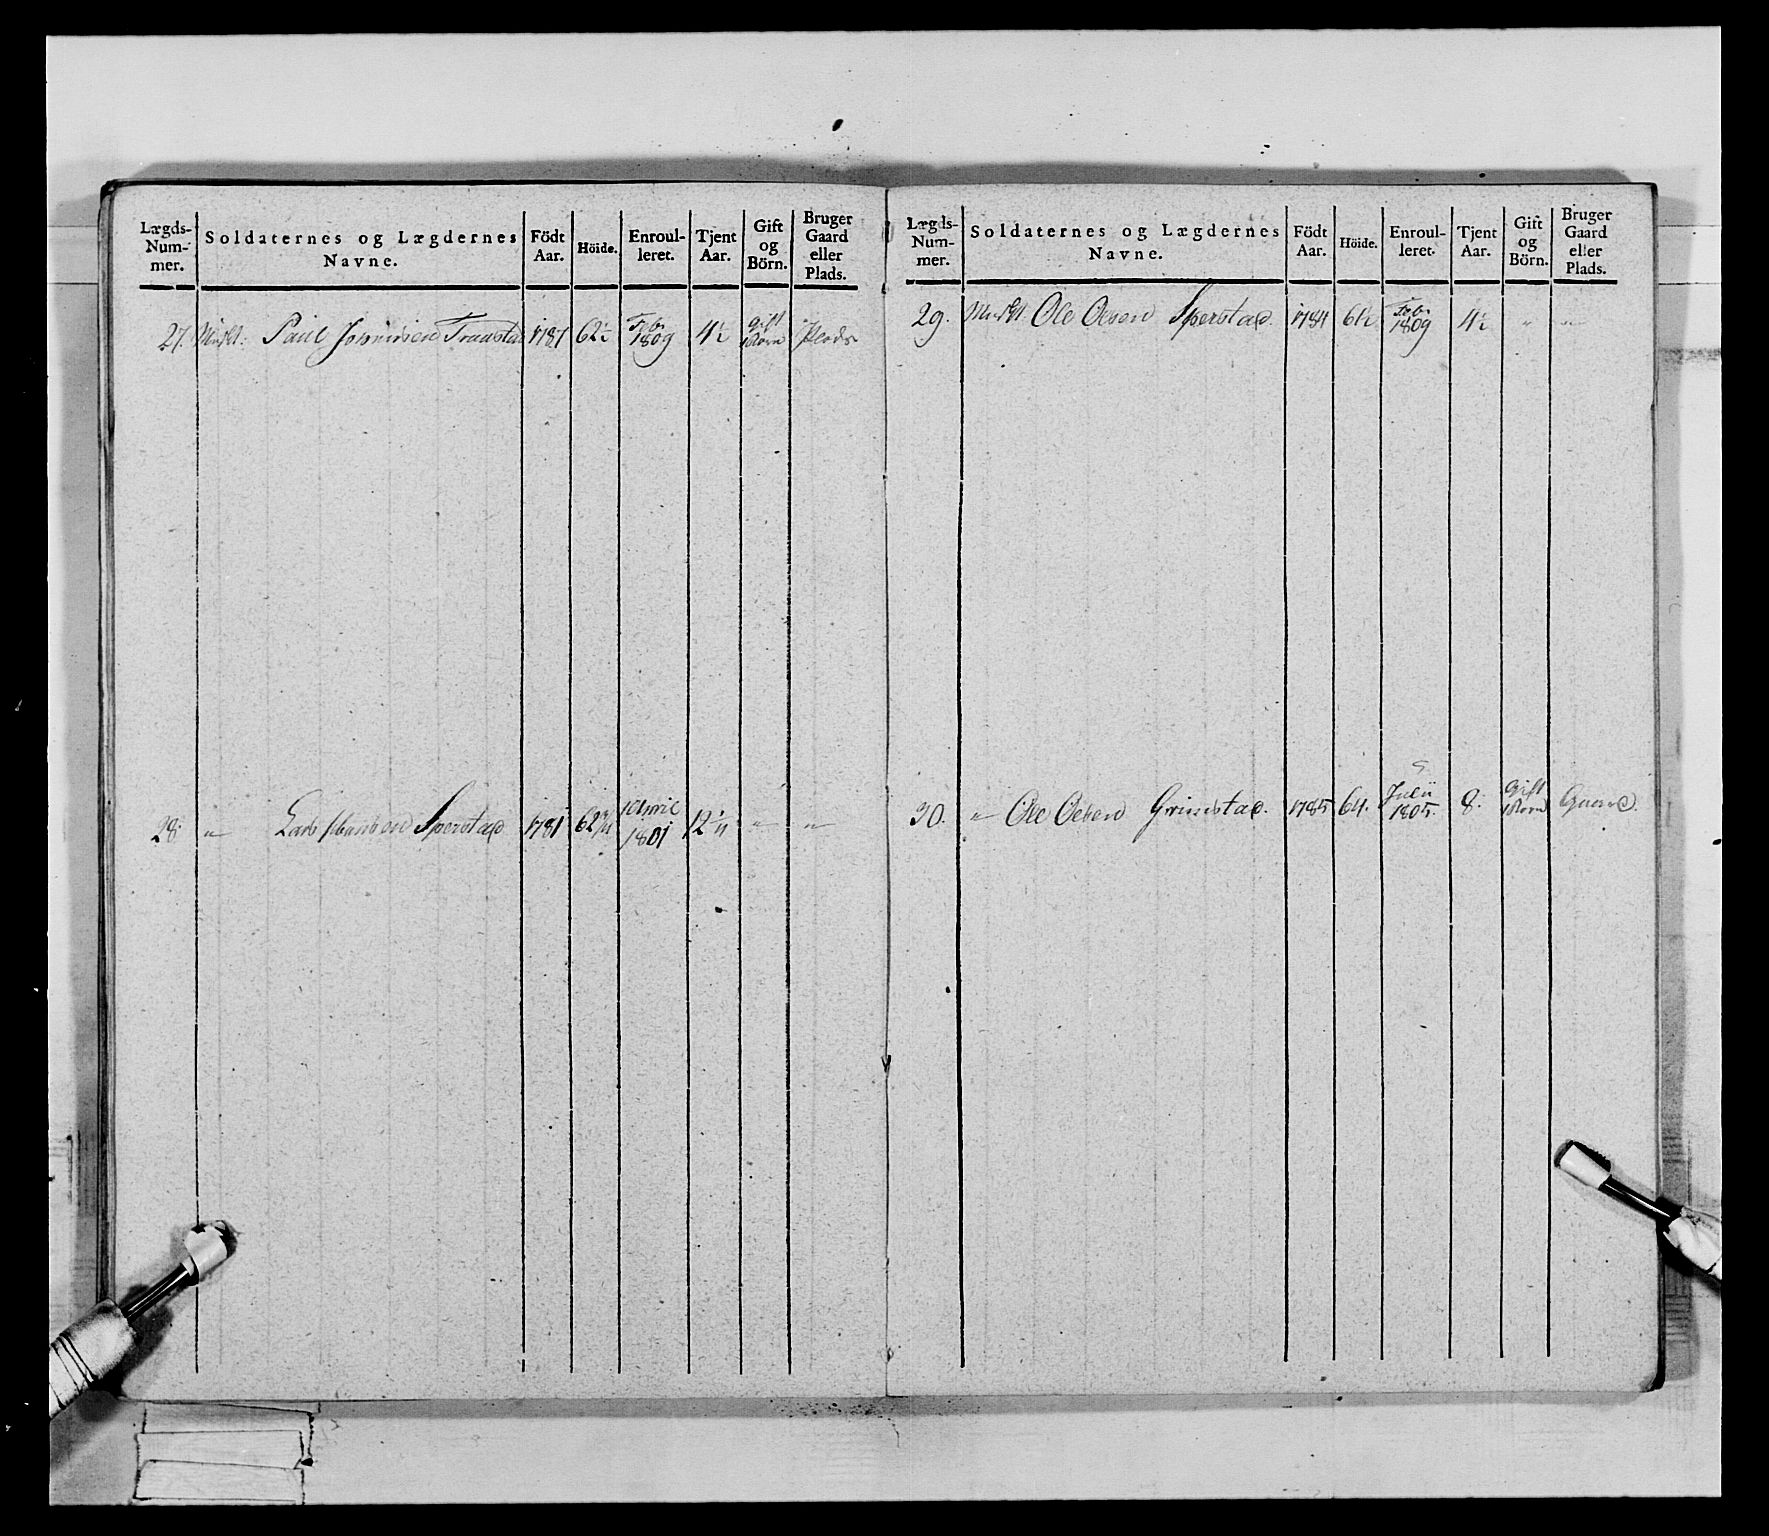 Lægds-Num-mer. Soldaternes og Lægdernes Navne. Födt Aar. Höide. Enroul-leret. Tjent Aar. Gift og Börn. Bruger Gaard eller Plads.
27. Musqt: Paul Johnnisen Traastad 1787 62½ Febr 1809 4½ gift 1 Børn Plads
28 " Lars Hansen Sperstad 1781 62¾ April 1801 12 " "
Lægds-Num-mer. Soldaternes og Lægdernes Navne. Födt Aar. Höide. Enroul-leret. Tjent Aar. Gift og Börn. Bruger Gaard eller Plads.
29. Musqt. Ole Olsen Sperstad. 1784 61½ Febr 1809 4½ " "
30. " Ole Olsen Grimstad. 1785 64. Julii 1805. 8. Gift 1 Børn Gaard.